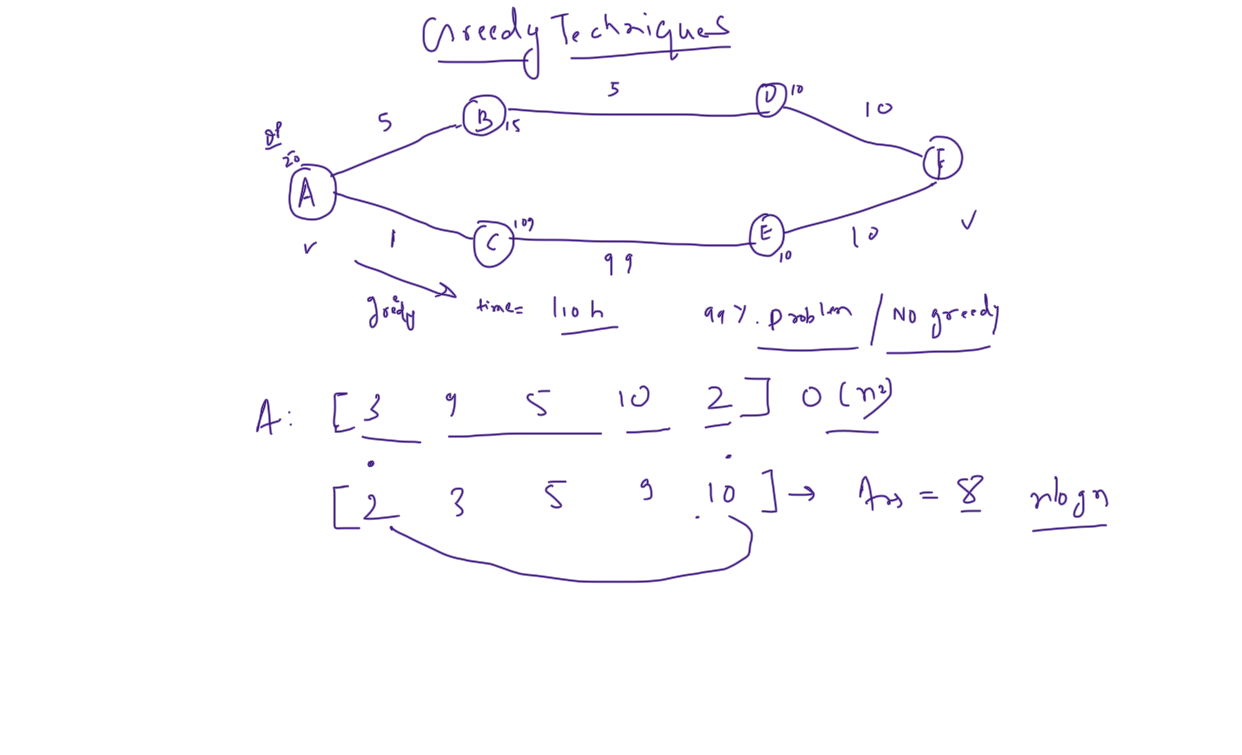 Greedy Techniques
5
D 10
10
5
B 15
20
A
F
1
C 109
E 10
99
10
greedy time= 110 h 99 %. problem / No greedy
A: [ 3 9 5 10 2 ] O(n²)
[ 2 3 5 9 10 ] → Ans = 8 nlogn